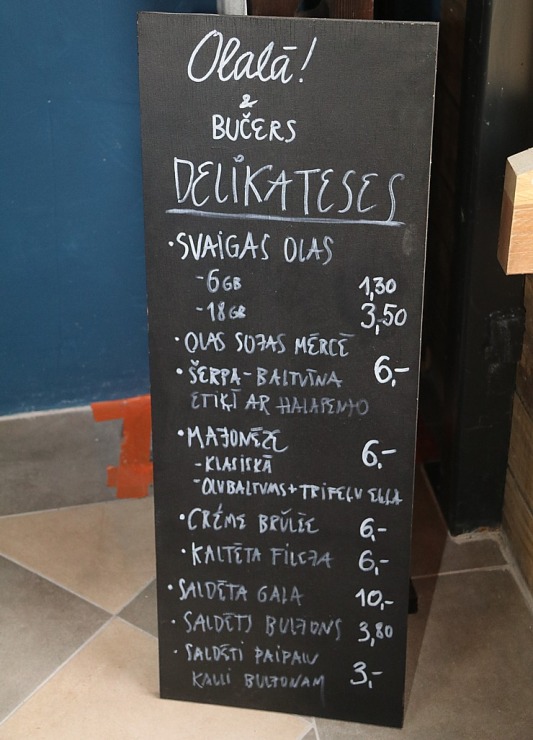 Olalā!
&
BUČERS
DELIKATESES
• SVAIGAS OLAS
- 6 GB 1,30
- 18 GB 3,50
• OLAS SOJAS MĒRCĒ
• ŠERPA - BALTVĪNA 6,-
ETIĶĪ AR HALAPENJO
• MAJONĒZE 6,-
- KLASISKĀ
- OLUBALTUMS + TRIFEĻU EĻĻA
• CRÉME BRÛLÉE 6,-
• KALTĒTA FILEJA 6,-
• SALDĒTA GAĻA 10,-
• SALDĒTS BULJONS 3,80
• SALDĒTI PAIPALU 3,-
KAULI BULJONAM